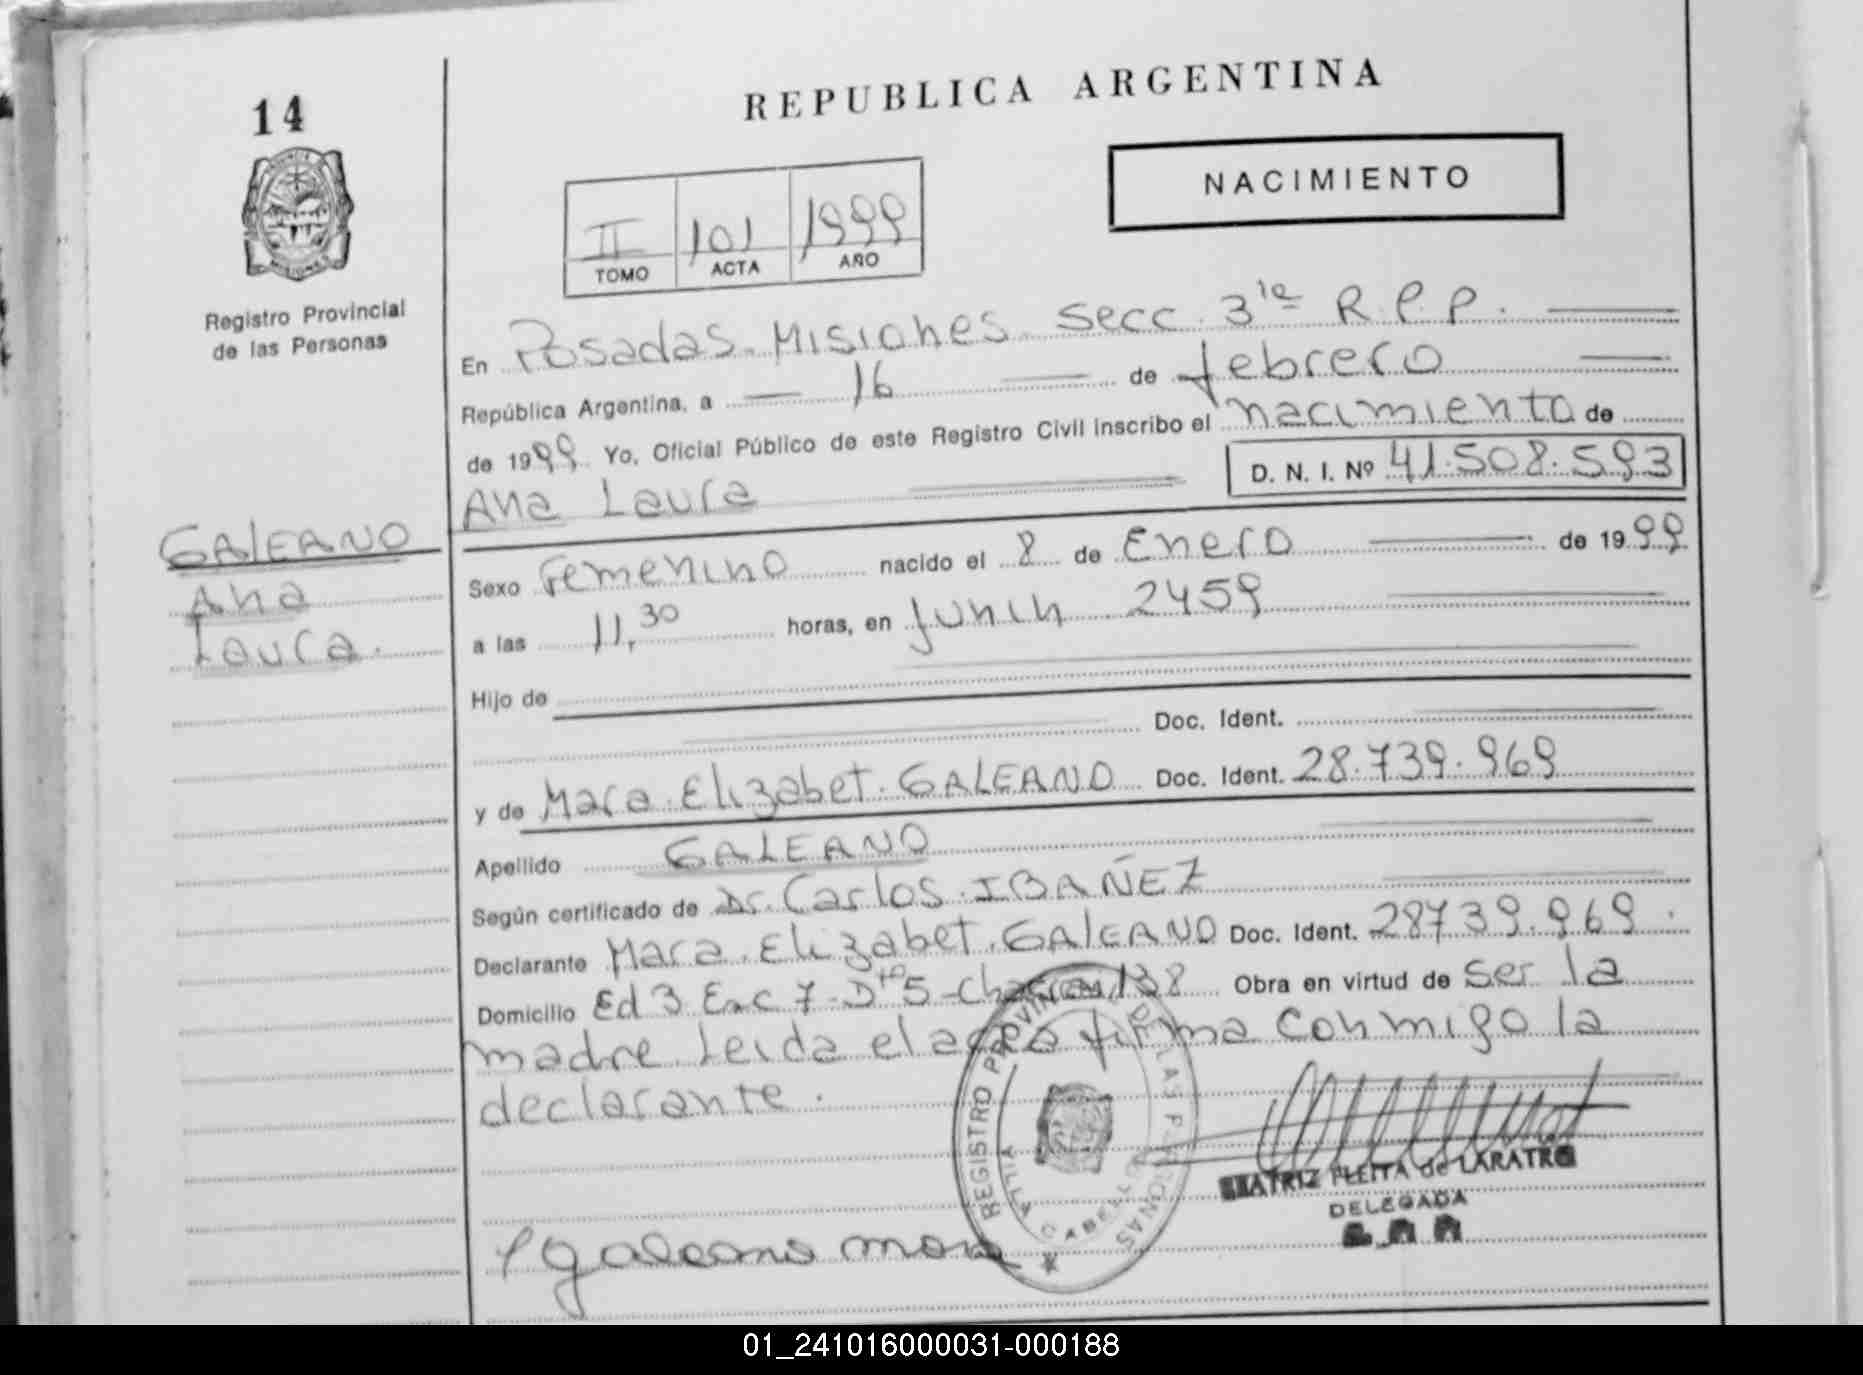 14
REPUBLICA ARGENTINA
NACIMIENTO
II 101 1999
TOMO ACTA AÑO
Registro Provincial
de las Personas
En Posadas. Misiones Secc. 3ra R.P.P.
República Argentina, a 16 de febrero
de 1999 Yo, Oficial Público de este Registro Civil inscribo el nacimiento de
D. N. I. Nº 41.508.593
Ana Laura
GALEANO
Ana
Laura.
Sexo Femenino nacido el 8 de Enero de 1999
a las 11,30 horas, en Junin 2459
Hijo de
Doc. Ident.
y de Mara Elizabet. GALEANO Doc. Ident. 28.739.969
Apellido GALEANO
Según certificado de Dr. Carlos IBAÑEZ
Declarante Mara Elizabet. GALEANO Doc. Ident. 28739.969.
Domicilio Ed 3 Esc 7-Dto 5-Chacra 138 Obra en virtud de Ser la
madre Leida el acta firma conmigo la
declarante.
REGISTRO PROVINCIAL DE LAS PERSONAS
VILLA CABELLO
BEATRIZ FLEITA de LARATRO
DELEGADA
galeano mara
01_241016000031-000188